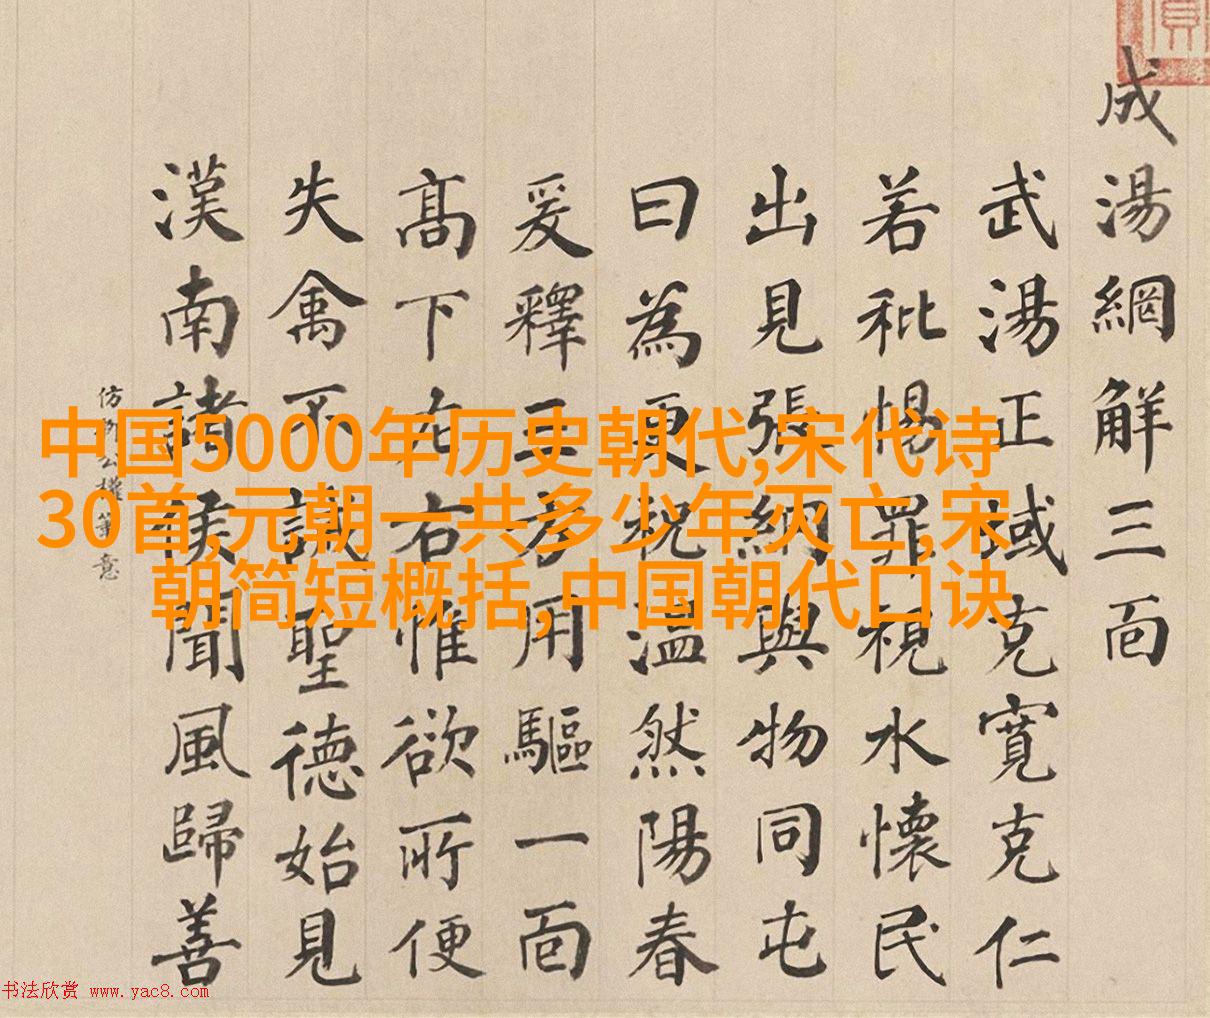 成湯網解三面
武湯正域克寬克仁
若秕惕罪視水懷民
出見張網與物同屯
曰為更祝溫然陽春
爰釋三用驅一面
高下左右惟欲所便
失禽不誡聖德始見
漢南諸侯聞風歸善
仿公權筆意
中国5000年历史朝代,宋代诗
30首,元朝一共多少年灭亡,宋
朝简短概括,中国朝代口诀
书法欣赏 www.yac8.com